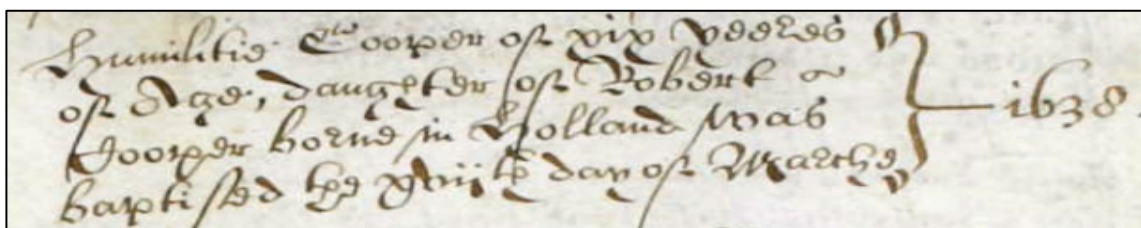 Humilitie Cooper of xix yeeres
of Age, daughter of Robert
Cooper borne in Holland was
baptised the xvijth day of Marche
1638.